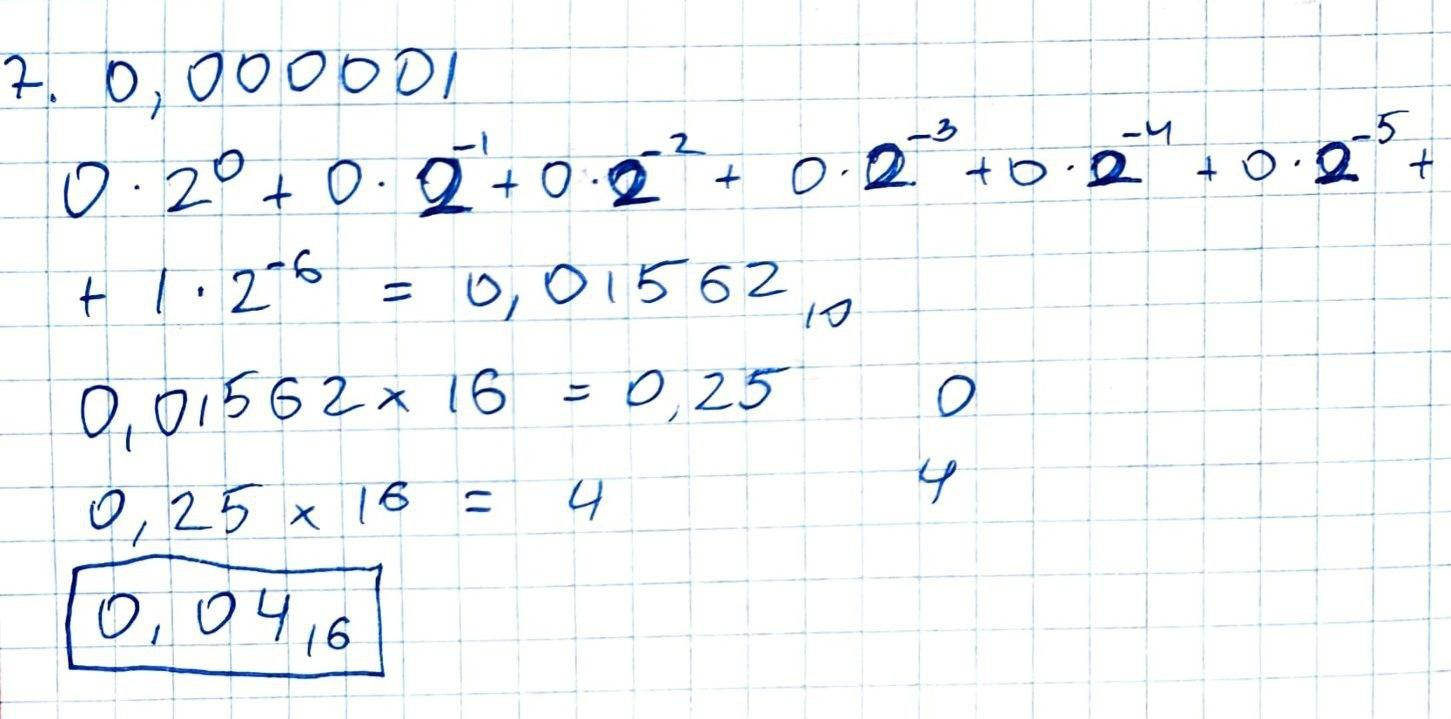 7. 0,000001
0 · 2⁰ + 0 · 2⁻¹ + 0 · 2⁻² + 0 · 2⁻³ + 0 · 2⁻⁴ + 0 · 2⁻⁵ +
+ 1 · 2⁻⁶ = 0,01562₁₀
0,01562 × 16 = 0,25 0
0,25 × 16 = 4 4
0,04₁₆